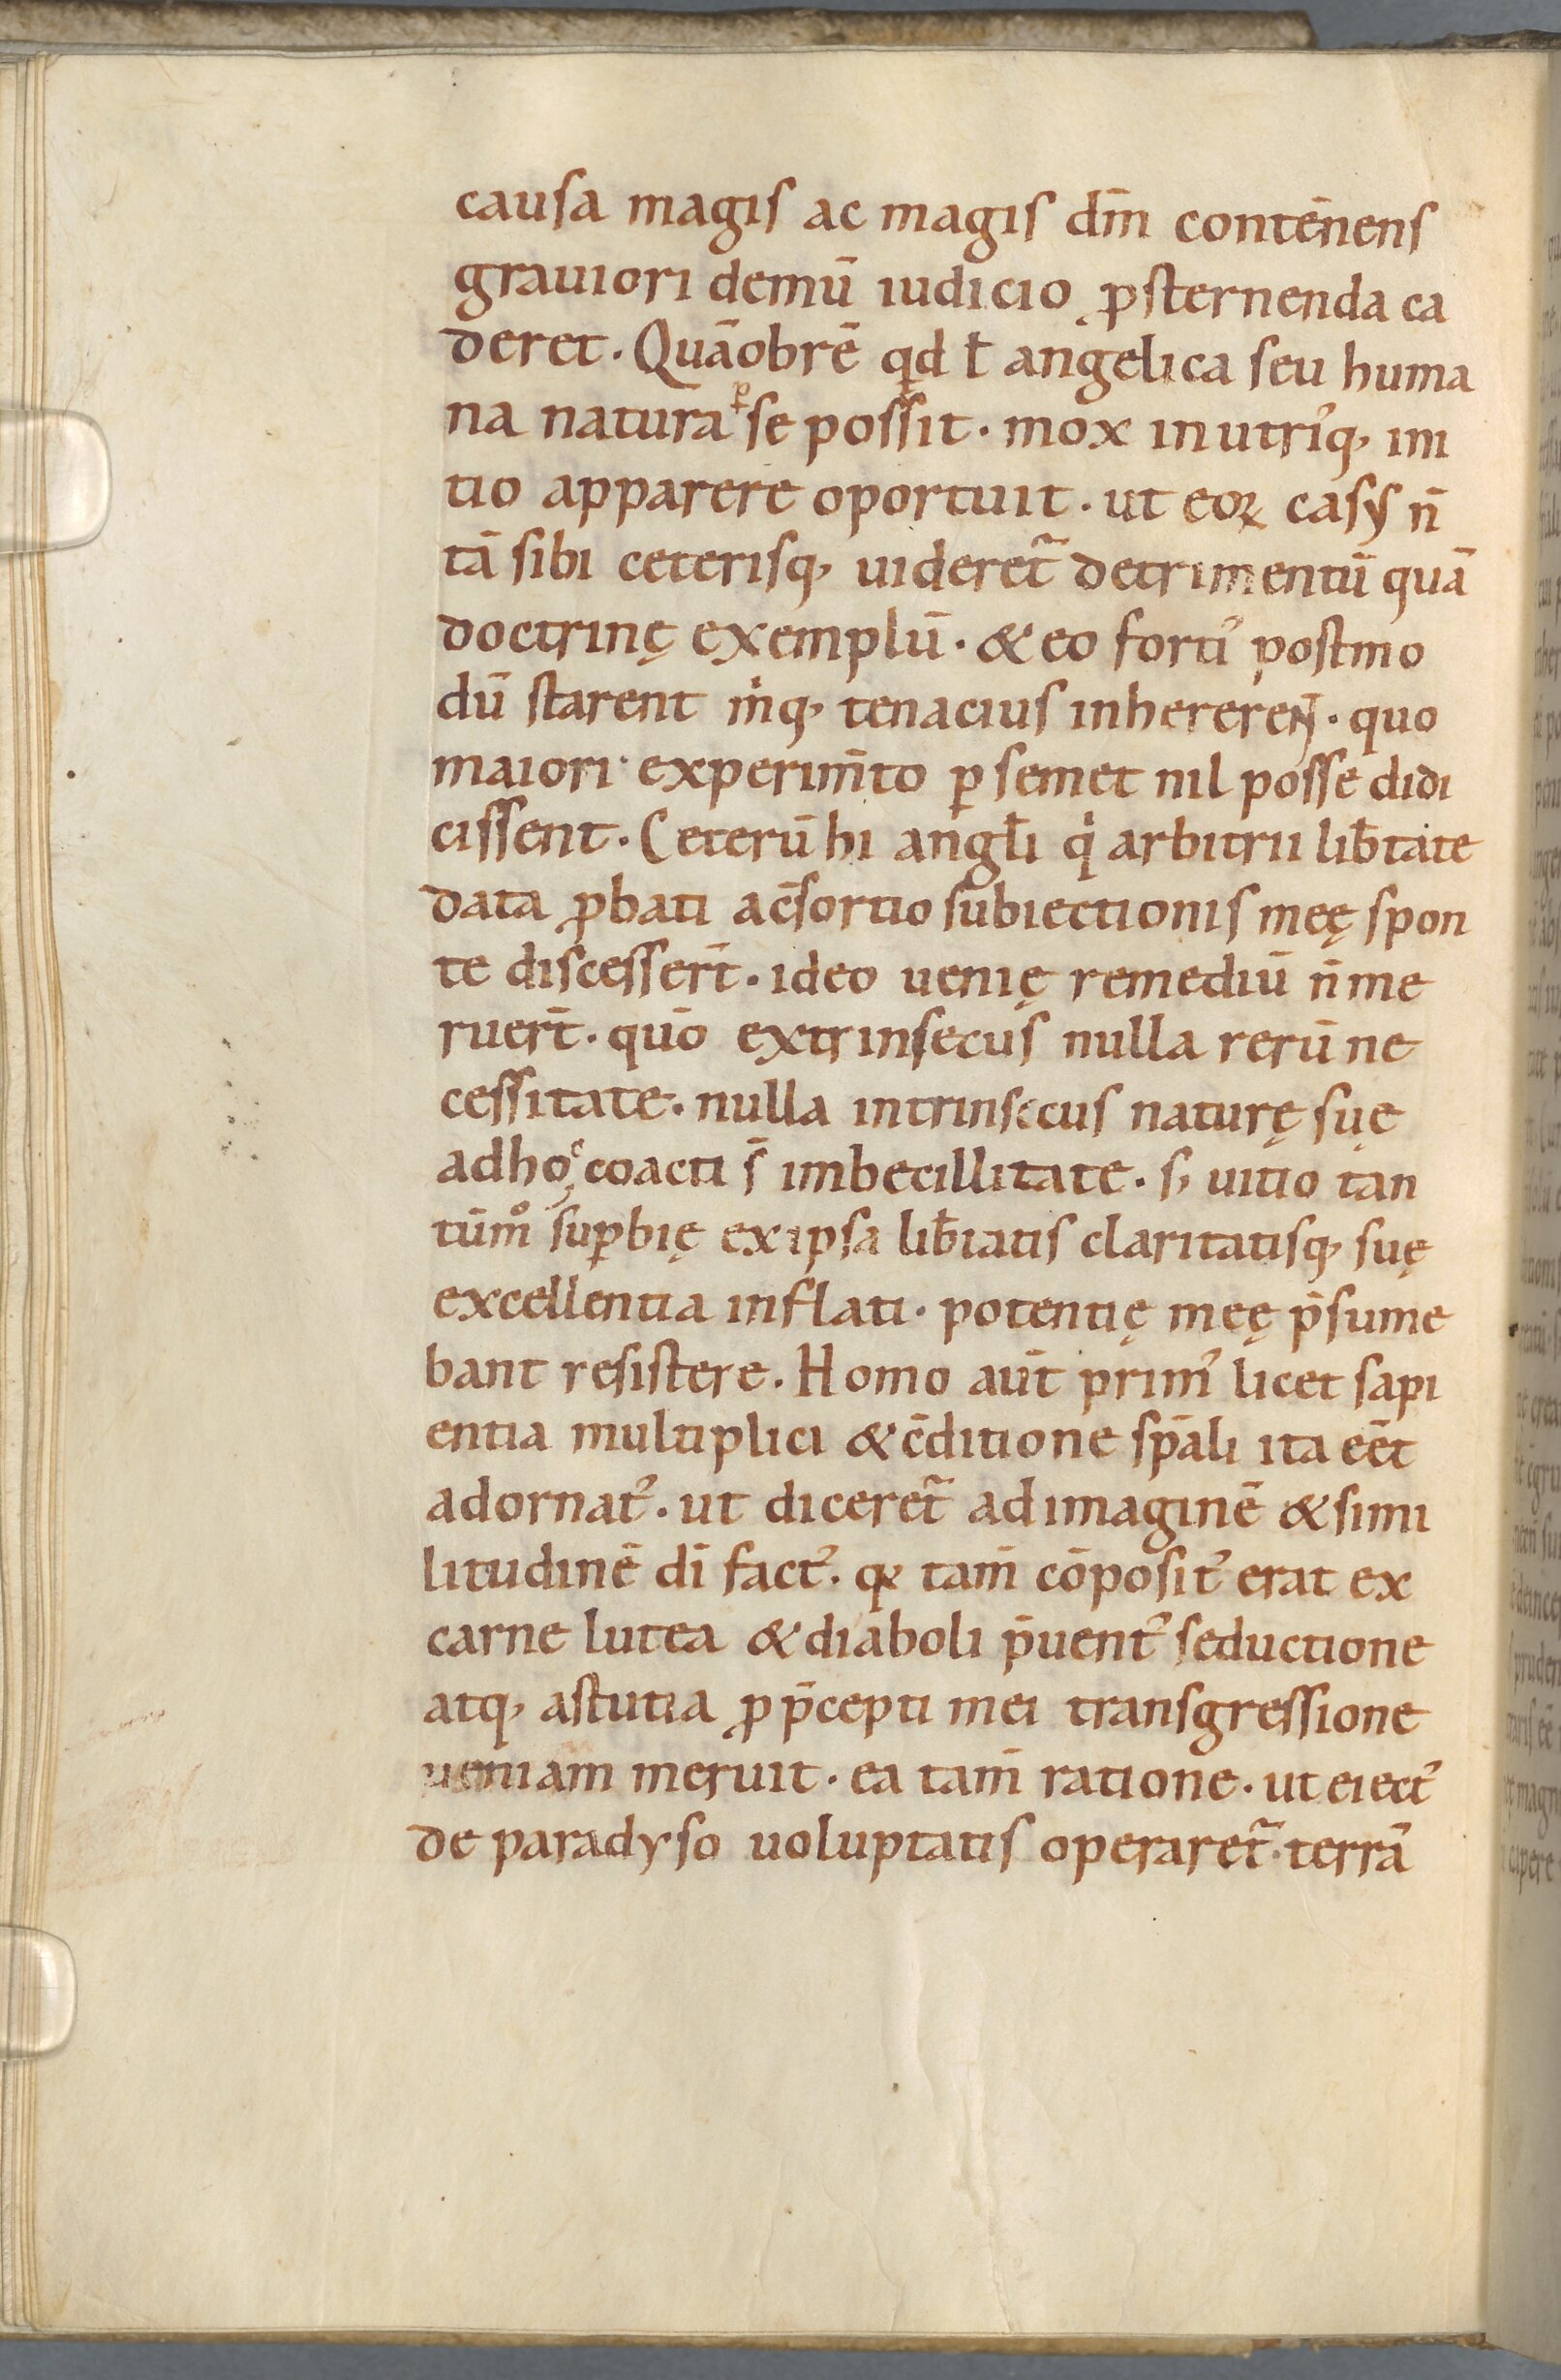 causa magis ac magis dm̄ contēnens
grauiori demū iudicio ꝓsternenda ca
deret. Quāobrē qͥd ł angelica seu huma
na natura ꝑ se possit. mox in utriꝰq, ini
tio apparere oportuit. ut eoꝝ casꝰ n̄
tā sibi ceterisq, uideret᷑ detrimentū quā
doctrinę exemplū. & eo fortiꝰ postmo
dū starent mͥq, tenacius inhererent. quo
maiori experim̄to ꝑ semet nil posse didi
cissent. Ceterū hi angłi qͥ arbitrii lib̄tate
data ꝓbati ac̄sortio subiectionis meę spon
te discesser̄t. ideo uenię remediū n̄ me
ruer̄t. quō extrinsecus nulla rerū ne
cessitate. nulla intrinsecus naturę suę
ad hoͨ coacti s̄ imbecillitate. s, uitio tan
tūmͦ suꝑbię ex ipsa lib̄tatis claritatisq, suę
excellentia inflati. potentię meę p̄sume
bant resistere. Homo aūt primꝰ licet sapi
entia multiplici & c̄ditione sp̄ali ita eēt
adornatꝰ. ut diceret᷑ ad imaginē & simi
litudinē dī factꝰ. qꝛ tam̄ cōpositꝰ erat ex
carne lutea & diaboli p̄uentꝰ seductione
atq, astutia ꝓ p̄cepti mei transgressione
ueniam meruit. ea tam̄ ratione. ut eiectꝰ
de paradyso uoluptatis operaret᷑. terrā